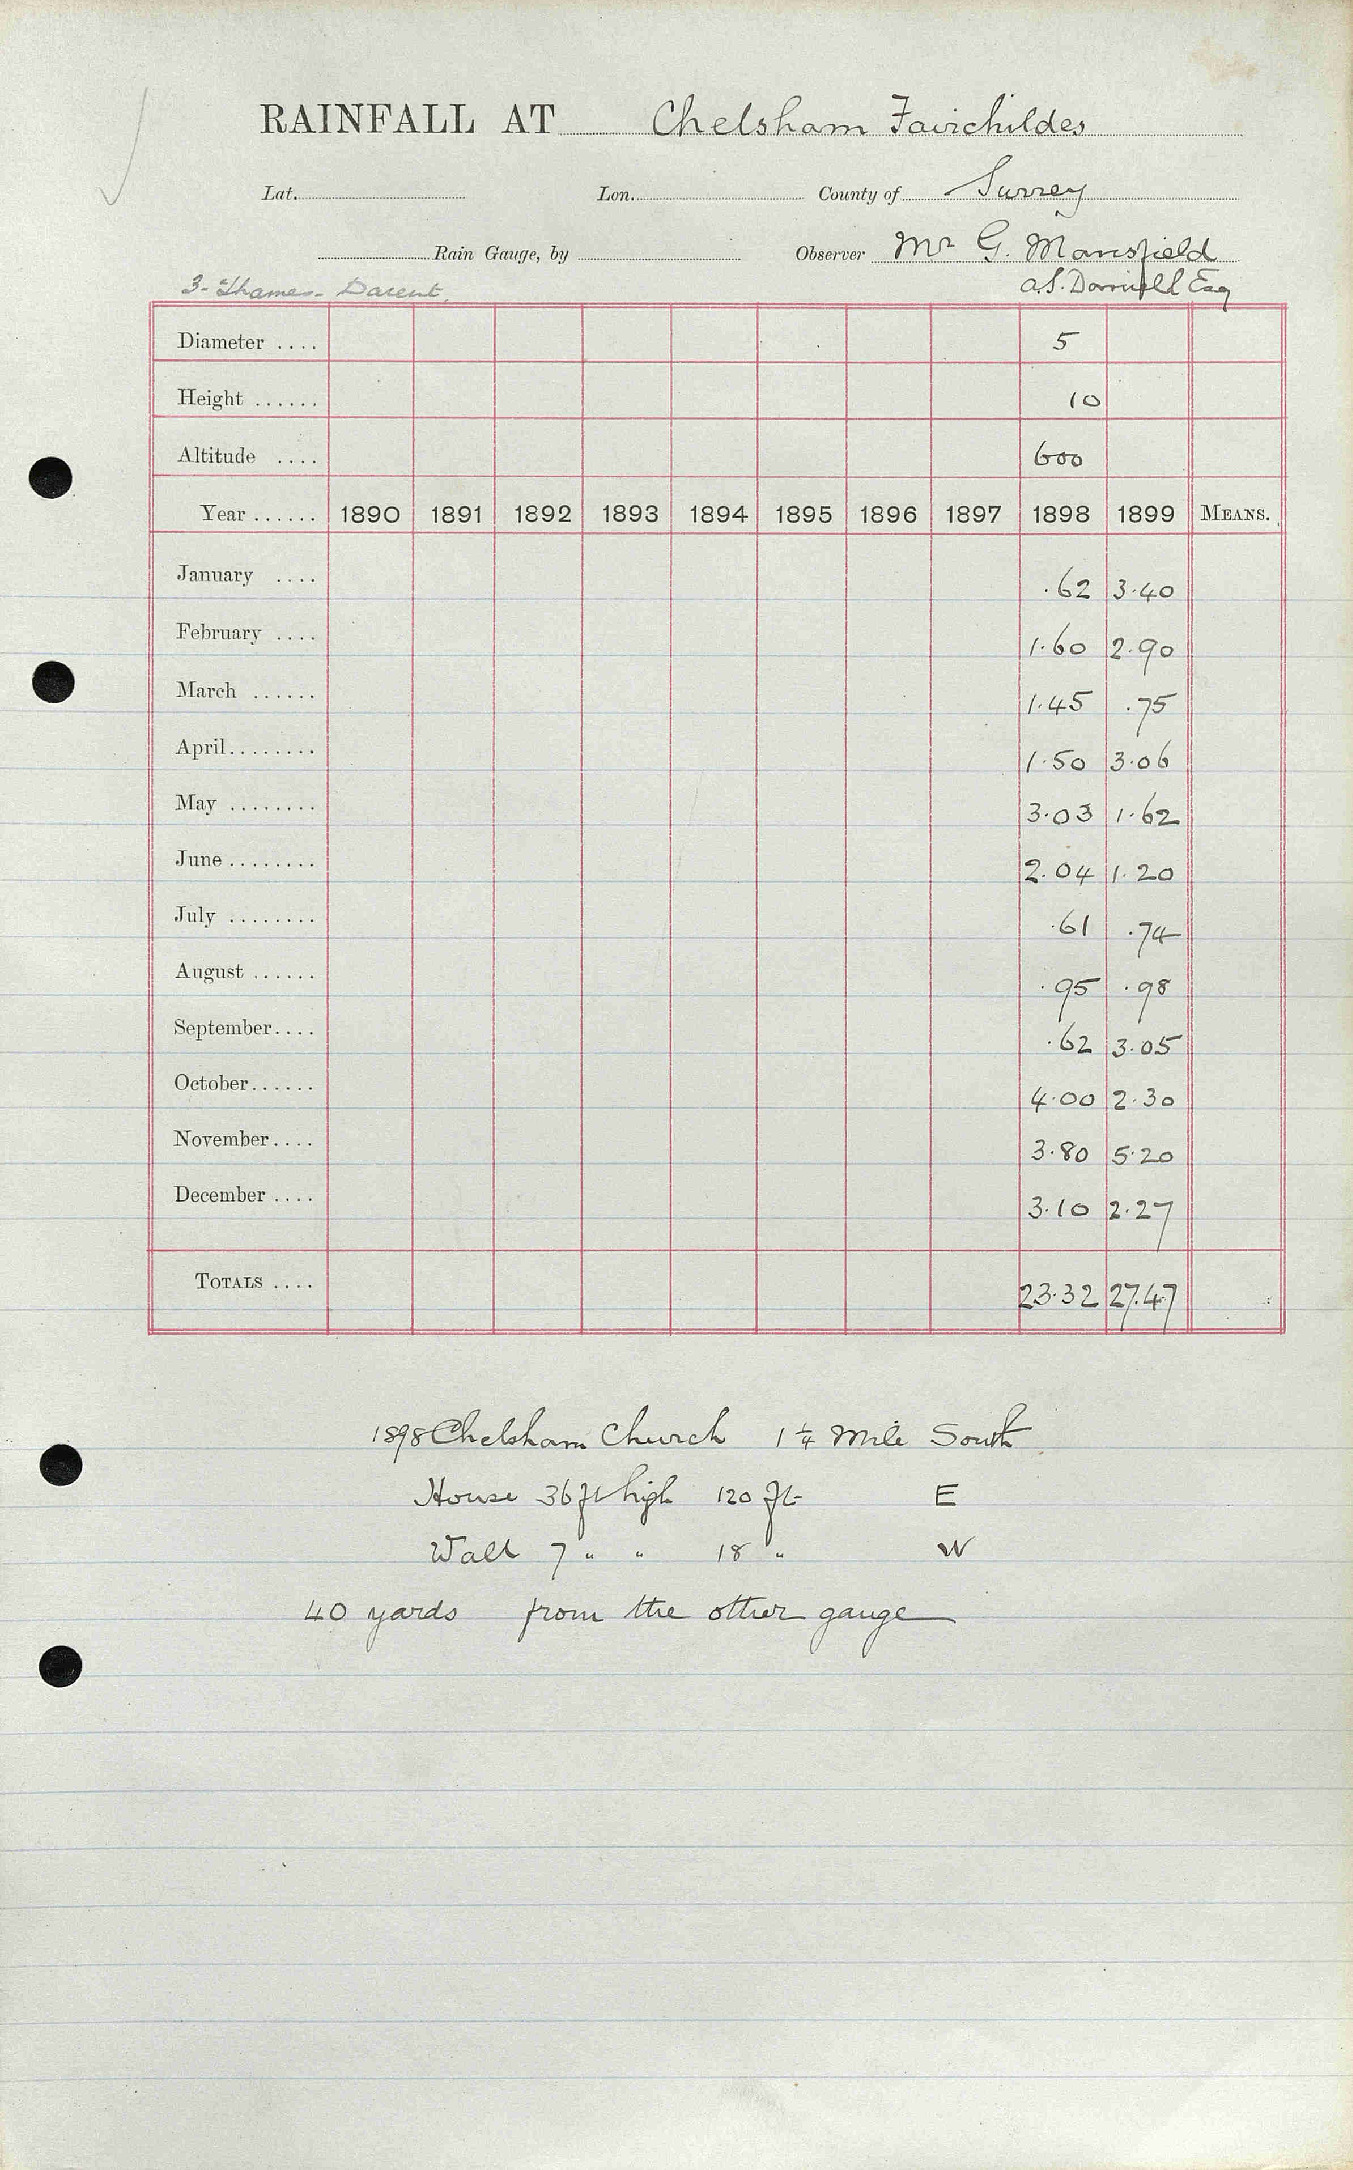 RAINFALL AT Chelsham Fairchildes
Lat. Lon. County of Surrey
Rain Gauge, by Observer Mr G. Mansfield
3 - Thames - Darent. A.S. Esq
Diameter .... 5
Height ...... 10
Altitude .... 600
Year ...... 1890 1891 1892 1893 1894 1895 1896 1897 1898 1899 MEANS.
January .... .62 3.40
February .... 1.60 2.90
March ...... 1.45 .75
April........ 1.50 3.06
May ........ 3.03 1.62
June ........ 2.04 1.20
July ........ .61 .74
August ...... .95 .98
September.... .62 3.05
October...... 4.00 2.30
November.... 3.80 5.20
December .... 3.10 2.27
TOTALS .... 23.32 27.47
1898 Chelsham Church 1 1/4 Mile South
House 36 ft high 120 ft E
Wall 7 " " 18 " W
40 yards from the other gauge